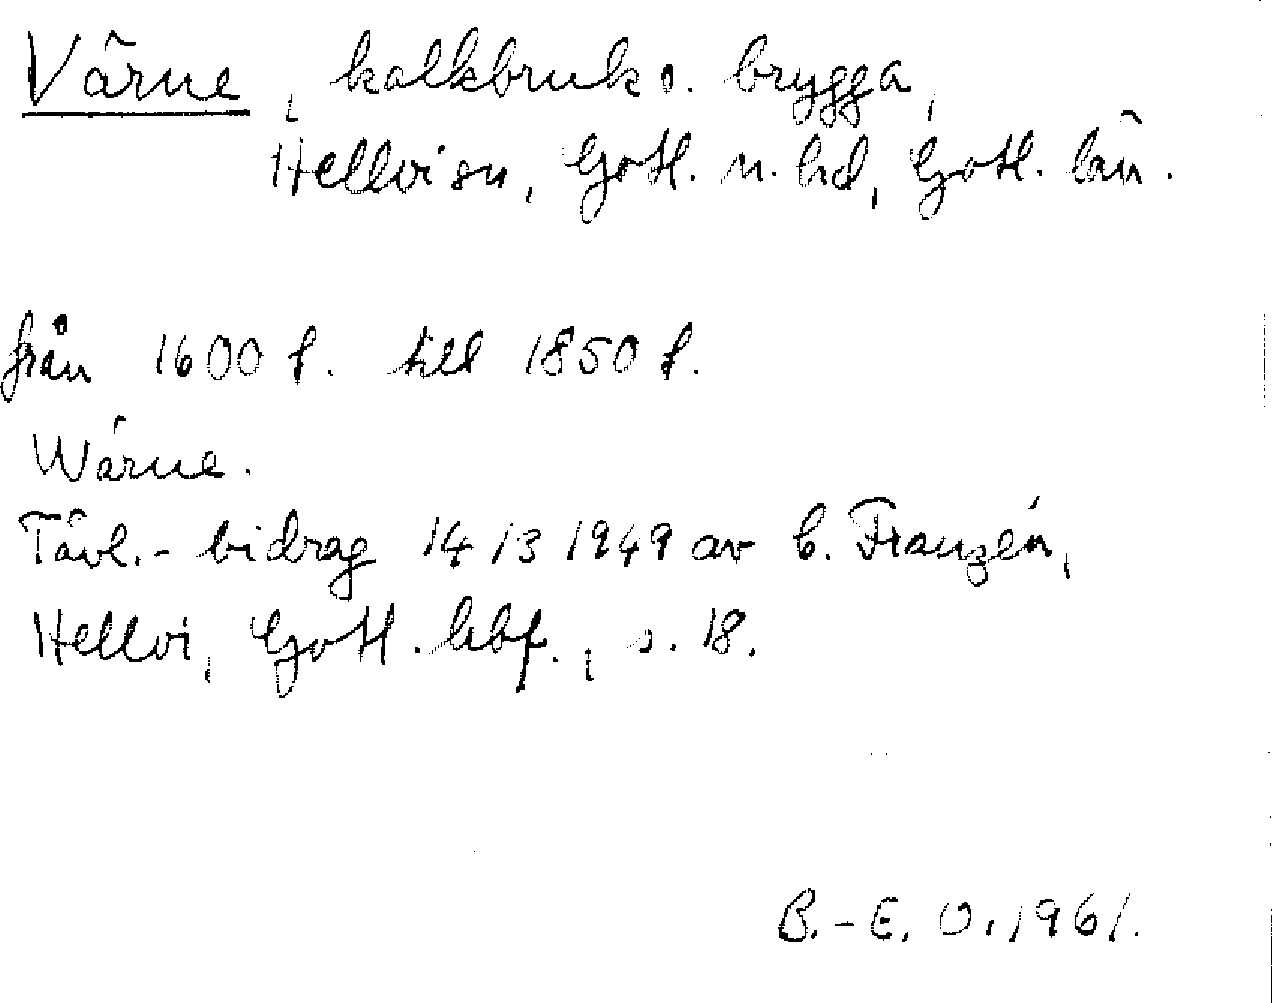 Värne, kalkbruk o. brygga,
Hellvi sn, Gotl. n. hd, Gotl. län.
från 1600 t. till 1850 t.
Wärne.
Tävl.- bidrag 14/3 1949 av C. Franzén,
Hellvi, Gotl. hbf., s. 18.
B.-E. O. 1961.